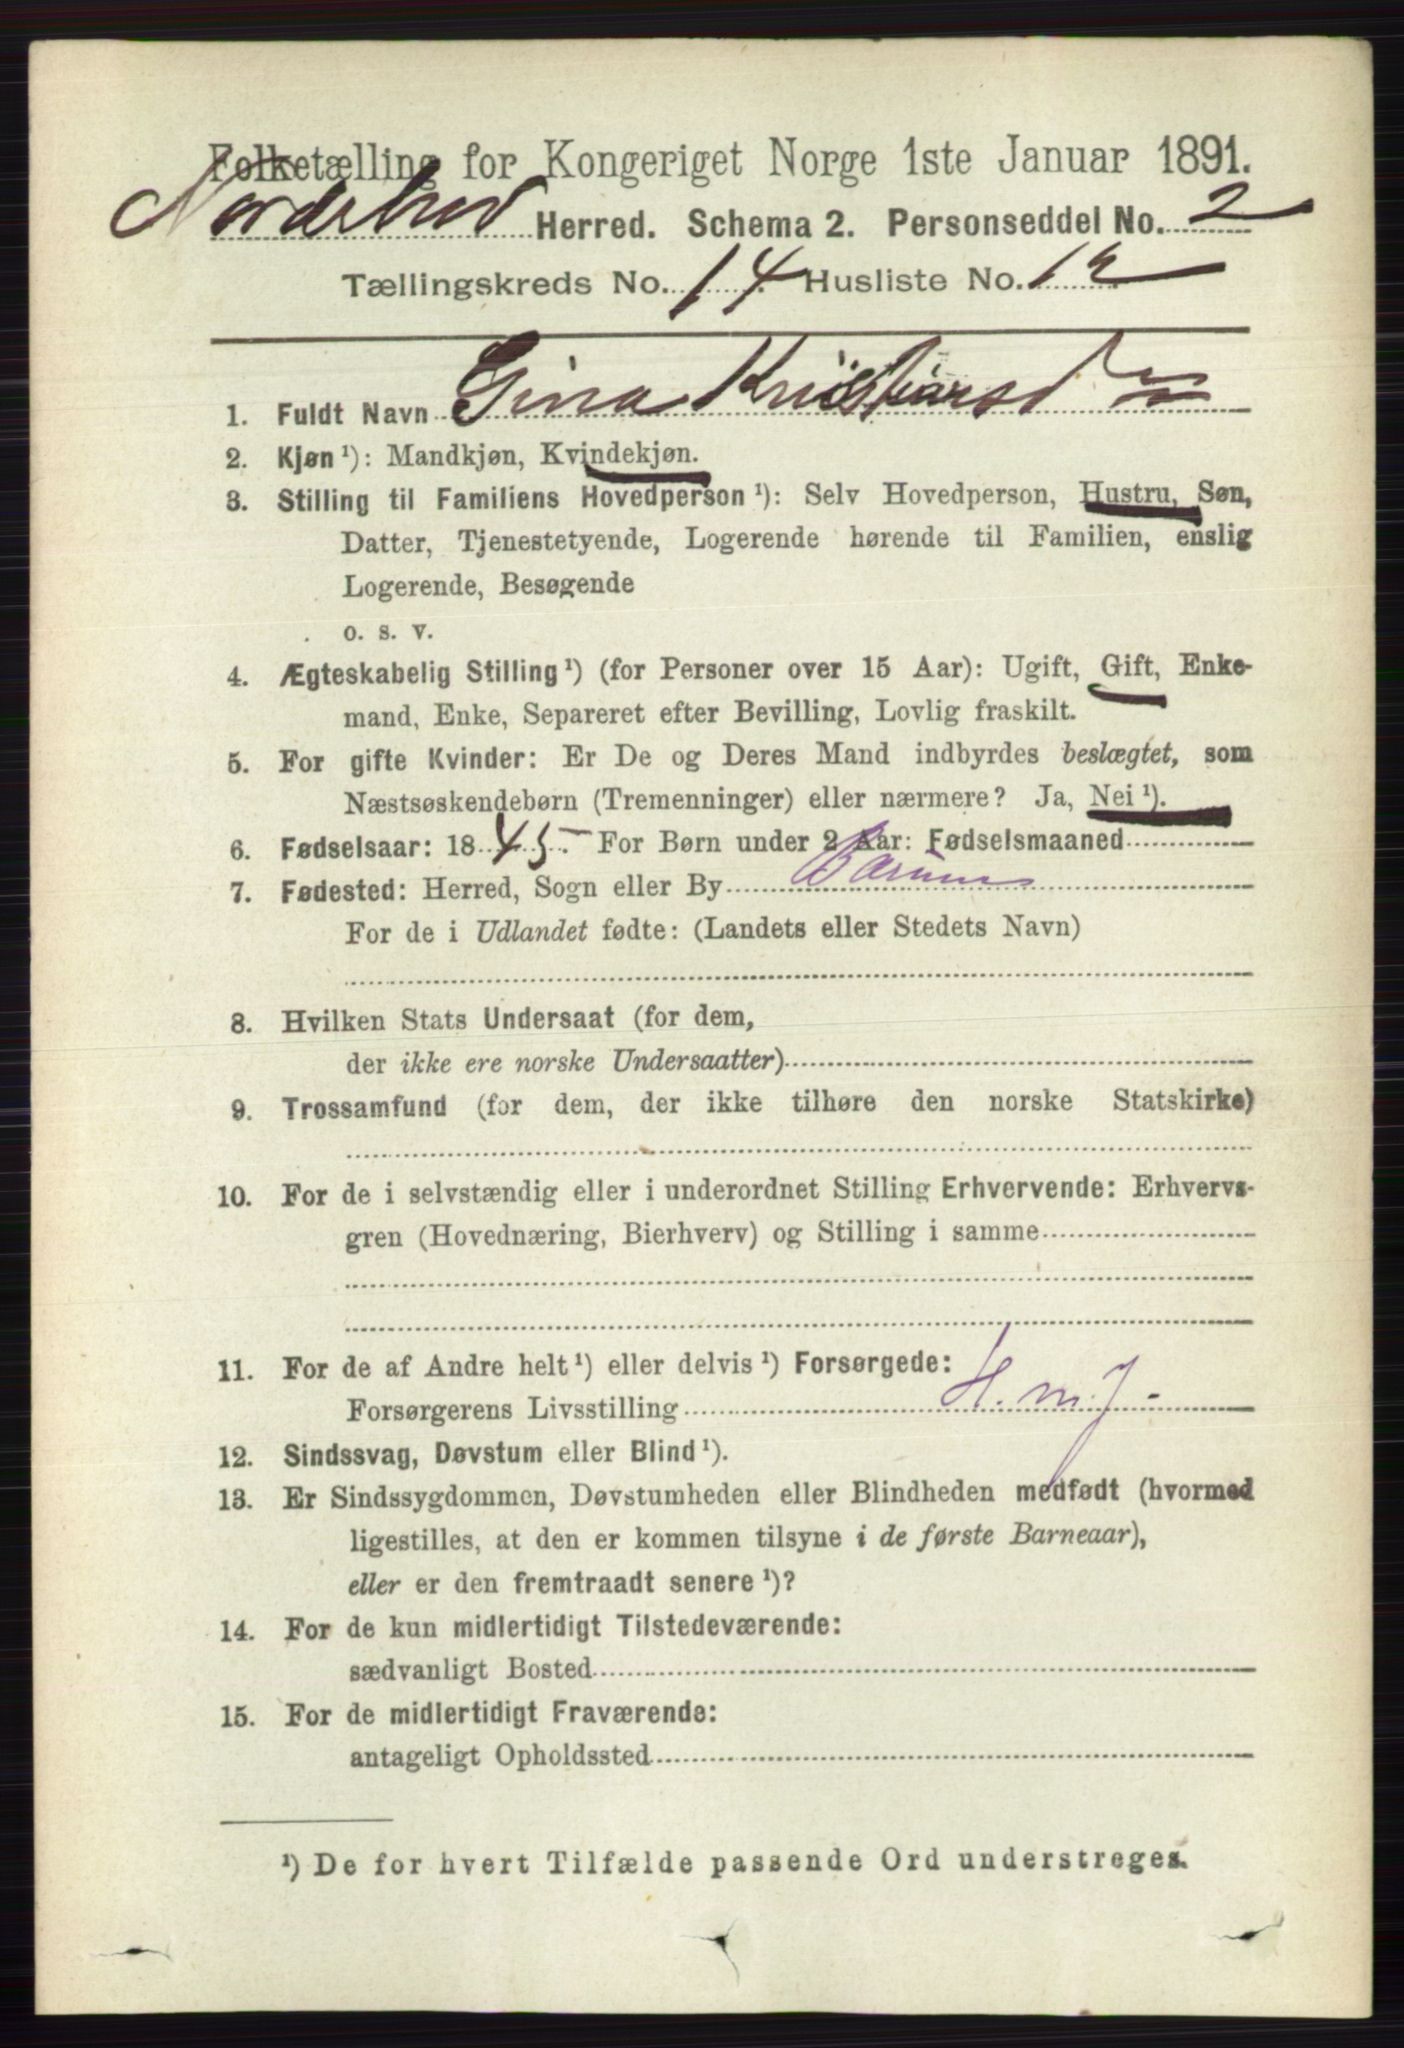 Folketælling for Kongeriget Norge 1ste Januar 1891.
Norderhov Herred. Schema 2. Personseddel No. 2
Tællingskreds No. 14. Husliste No. 12
1. Fuldt Navn Gina Kristians d
2. Kjøn ¹): Mandkjøn, Kvindekjøn.
3. Stilling til Familiens Hovedperson ¹): Selv Hovedperson, Hustru, Søn,
Datter, Tjenestetyende, Logerende hørende til Familien, enslig
Logerende, Besøgende
o. s. v.
4. Ægteskabelig Stilling ¹) (for Personer over 15 Aar): Ugift, Gift, Enke-
mand, Enke, Separeret efter Bevilling, Lovlig fraskilt.
5. For gifte Kvinder: Er De og Deres Mand indbyrdes beslægtet, som
Næstsøskendebørn (Tremenninger) eller nærmere? Ja, Nei ¹).
6. Fødselsaar: 1845. For Børn under 2 Aar: Fødselsmaaned
7. Fødested: Herred, Sogn eller By Bærum
For de i Udlandet fødte: (Landets eller Stedets Navn)
8. Hvilken Stats Undersaat (for dem,
der ikke ere norske Undersaatter)
9. Trossamfund (for dem, der ikke tilhøre den norske Statskirke)
10. For de i selvstændig eller i underordnet Stilling Erhvervende: Erhvervs-
gren (Hovednæring, Bierhverv) og Stilling i samme
11. For de af Andre helt ¹) eller delvis ¹) Forsørgede:
Forsørgerens Livsstilling H. m. J. -
12. Sindssvag, Døvstum eller Blind ¹).
13. Er Sindssygdommen, Døvstumheden eller Blindheden medfødt (hvormed
ligestilles, at den er kommen tilsyne i de første Barneaar),
eller er den fremtraadt senere ¹)?
14. For de kun midlertidigt Tilstedeværende:
sædvanligt Bosted
15. For de midlertidigt Fraværende:
antageligt Opholdssted
¹) De for hvert Tilfælde passende Ord understreges.